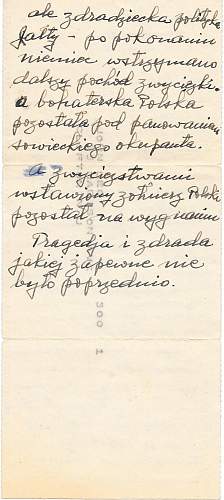 ale zdradziecka polityka
Jałty - po pokonaniu
niemiec wstrzymano
dalszy pochód zwycięzki.
a bohaterska Polska
pozostała pod panowaniem
sowieckiego okupanta.
a zwycięstwami
wsławiony żołnierz Polski
pozostał na wygnaniu
Tragedja i zdrada
jakiej zapewne nie
było poprzednio.
300
1